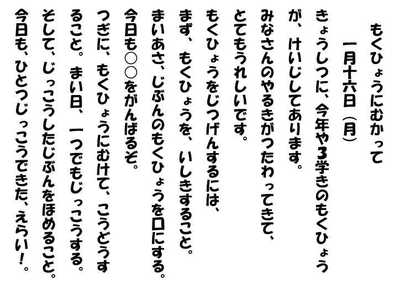 もくひょうにむかって
一月十六日（月）
きょうしつに、今年や３学きのもくひょう
が、けいじしてあります。
みなさんのやるきがつたわってきて、
とてもうれしいです。
もくひょうをじつげんするには、
まず、もくひょうを、いしきすること。
まいあさ、じぶんのもくひょうを口にする。
今日も○○をがんばるぞ。
つぎに、もくひょうにむけて、こうどうす
ること。まい日、一つでもじっこうする。
そして、じっこうしたじぶんをほめること。
今日も、ひとつじっこうできた、えらい！。